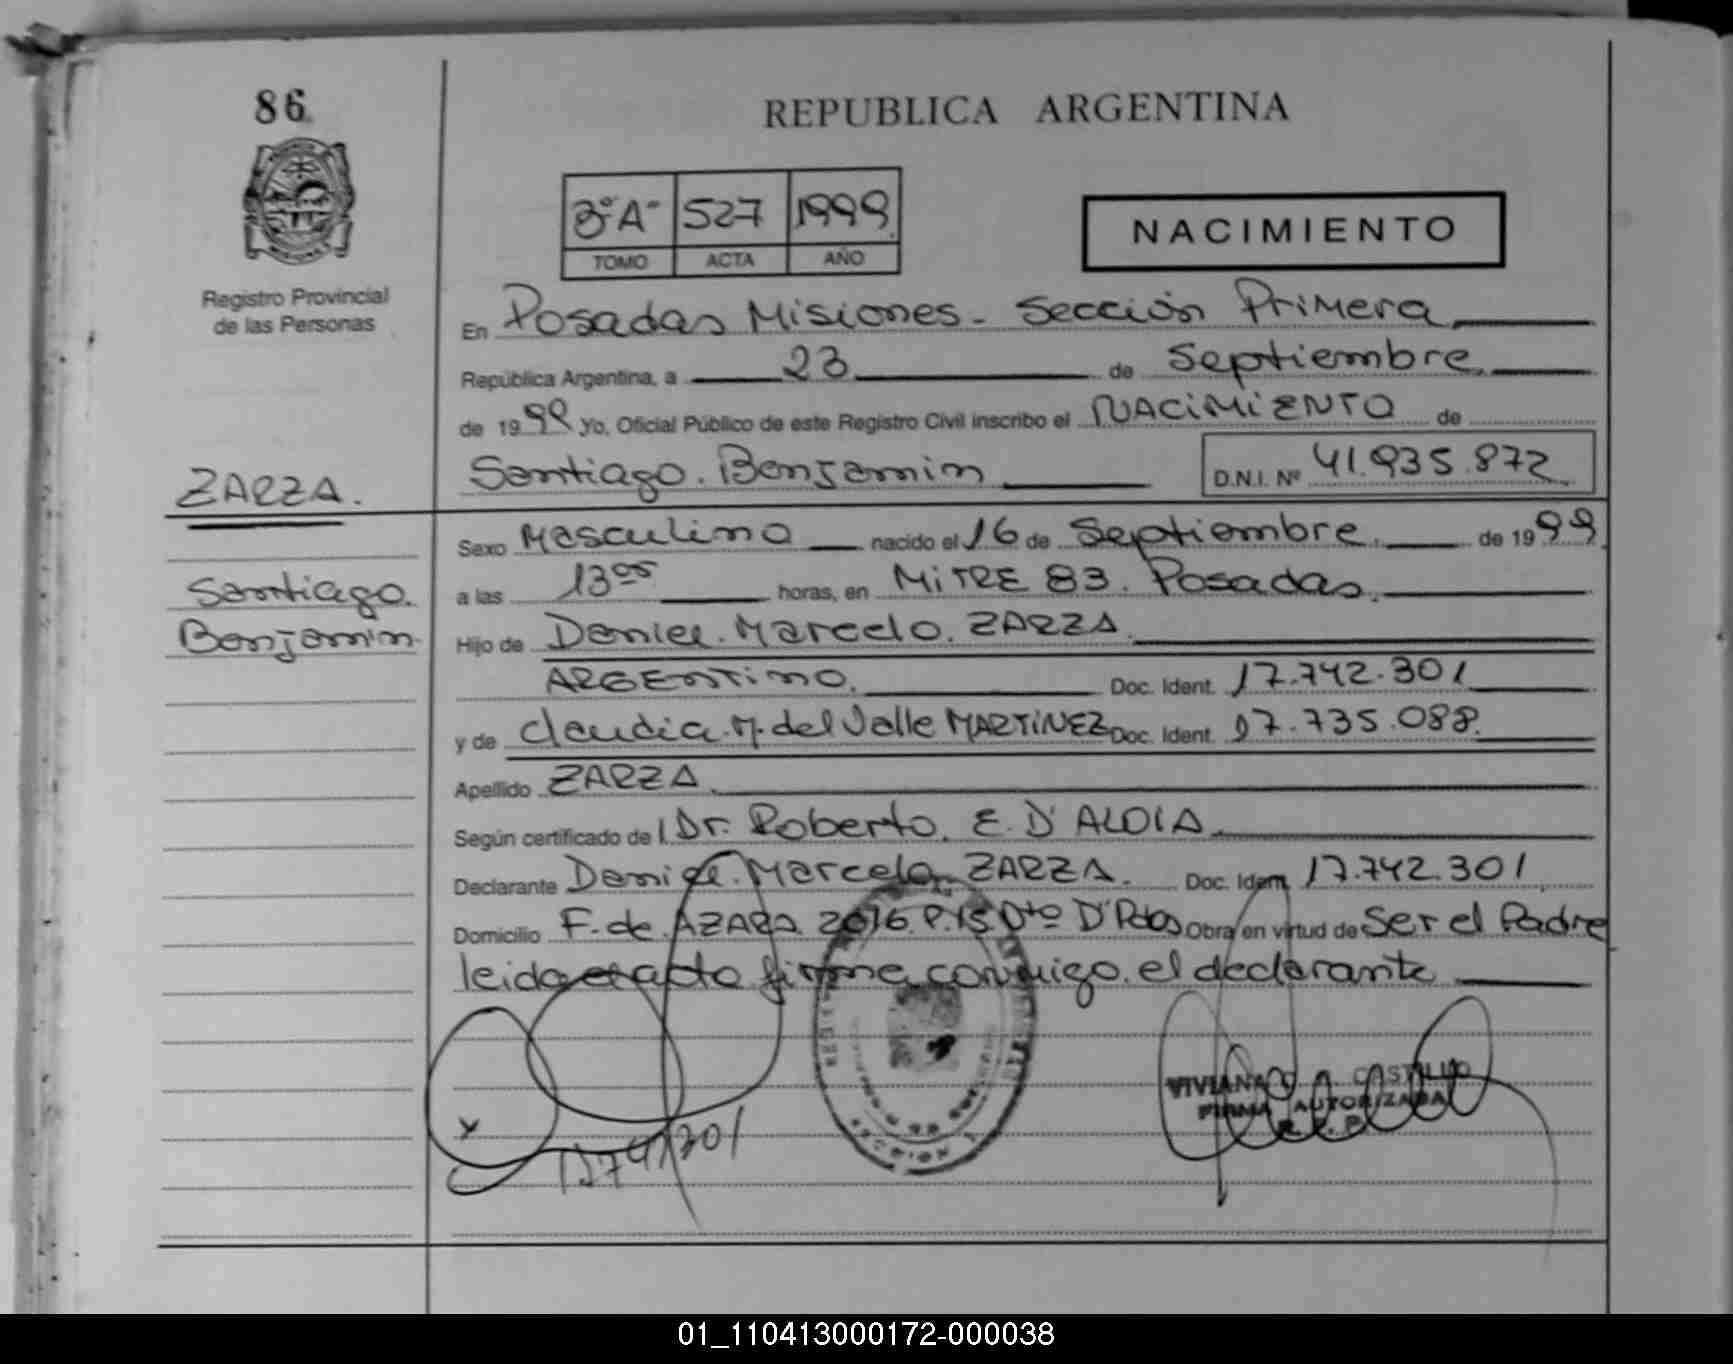 86
REPUBLICA ARGENTINA
3º A- 527 1999
TOMO ACTA AÑO
NACIMIENTO
Registro Provincial
de las Personas
En Posadas Misiones - Sección Primera
República Argentina, a 23 de Septiembre
de 1999 Yo, Oficial Público de este Registro Civil inscribo el NACIMIENTO de
Santiago. Benjamin D.N.I. Nº 41.935.872
ZARZA.
Santiago.
Benjamin.
Sexo Masculino nacido el 16 de Septiembre. de 1999
a las 13 horas, en MITRE 83. Posadas.
Hijo de Daniel. Marcelo. ZARZA.
ARGENTINO. Doc. Ident. 17.742.301
y de Claudia. M. del Valle MARTINEZ Doc. Ident. 17.735.088.
Apellido ZARZA
Según certificado de Dr. Roberto. E. D'ALOIA
Declarante Daniel. Marcelo. ZARZA. Doc. Ident. 17.742.301
Domicilio F. de AZARA 2016 P. 15 Dto D' Pdas Obra en virtud de Ser el Padre
leido el acto firma conmigo. el declarante
VIVIANA CASTILLO
FIRMA AUTORIZADA
01_110413000172-000038